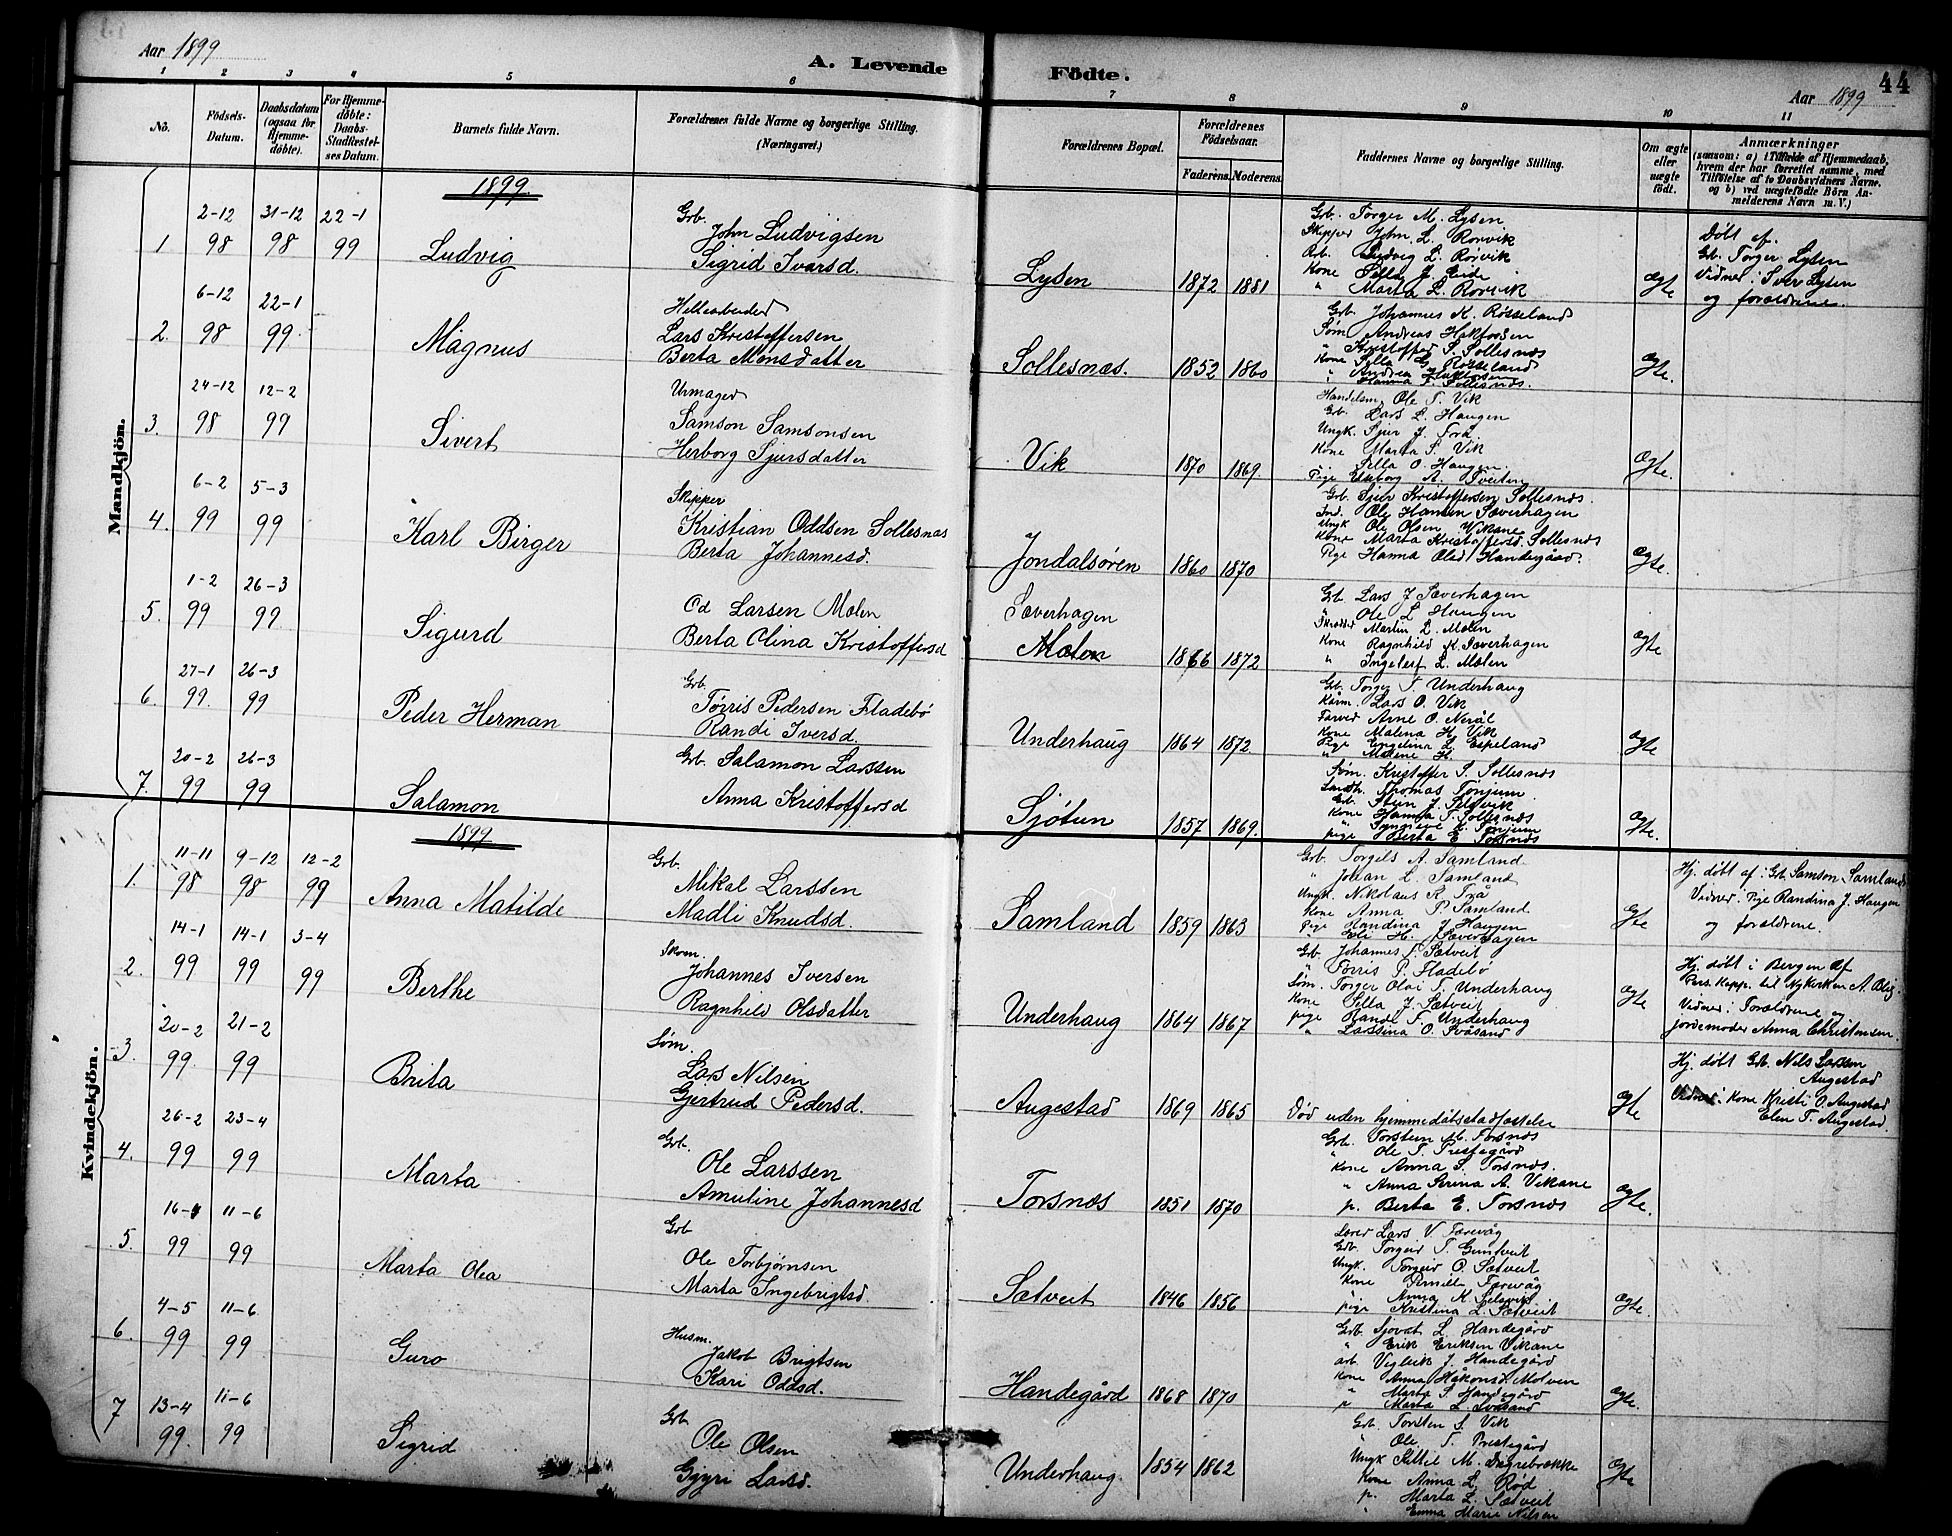 Aar 1899
A. Levende Födte.
44
Aar 1899
1 2 3 4 5 6 7 8 9 10 11
No.
Födsels-Datum.
Daabsdatum (ogsaa for Hjemme-döbte).
For Hjemme-döbte: Daabs-Stadfæstelses Datum.
Barnets fulde Navn.
Forældrenes fulde Navne og borgerlige Stilling. (Næringsvei.)
Forældrenes Bopæl.
Forældrenes Födselsaar.
Faderens. Moderens.
Faddernes Navne og borgerlige Stilling.
Om ægte eller uægte födt.
Anmærkninger
(saasom: a) i Tilfælde af Hjemmedaab, hvem der har forrettet samme, med Tilföielse af to Daabsvidners Navne, og b) ved uægtefödte Börn Anmelderens Navn m. V.)
Mandkjön.
1899
1. 2-12 98 31-12 98 22-1 99 Ludvig
Grb. John Ludvigsen
Sigrid Ivarsd.
Lysen 1872 1881
Grb. Torger M. Lysen
Skipper John L. Rorvik
Arb. Ludvig L. Rorvik
Kone Silla J. Eide
" Marta L. Rorvik
Ægte
Døbt af.
Grb. Torger Lysen
Vidner: Iver Lysen
og forældrene.
2. 6-12 98 22-1 99 Magnus
Lars Kristoffersen
Berta Monsdatter
Sollesnæs. 1852 1860
Grb. Johannes K. Røsseland
Søm. Andreas Hakforsen
" Kristoffer S. Sollesnæs
Kone Silla G. Røsseland
" Hanna T. Sollesnæs.
Ægte.
3. 24-12 98 12-2 99 Sivert
Urmager
Samson Samsonsen
Herborg Sjursdatter
Vik 1870 1869
Handelsm. Ole T. Vik
Grb. Lars L. Haugen
Ungk. Sjur J. Trå
Kone Marta S. Vik
" Silla O. Haugen
Ægte.
4. 6-2 99 5-3 99 Karl Birger
Skipper
Kristian Oddsen Sollesnæs
Berta Johannesd.
Jondalsøren 1860 1870
Grb. Sjur Kristoffersen Sollesnæs.
Ind. Ole Hansen Sæverhagen
Ungk Ole Olsen Vikane
Kone Marta Kristoffersd. Sollesnæs
Pige Hanna Olsd. Handegård.
Ægte.
5. 1-2 99 26-3 99 Sigurd
Od Larsen Mælen
Berta Olina Kristoffersd
Sæverhagen
Mælen 1866 1872
Grb. Lars J Sæverhagen
" Ole L Haugen
Skredder Martin L. Mælen
Kone Ragnhild K. Sæverhagen
" Ingeleif L. Mælen
Ægte
6. 27-1 99. 26-3 99 Peder Herman
Grb.
Tørris Pedersen Fladebø
Randi Iversd.
Underhaug 1864 1872
Grb. Torger T. Underhaug
Lars O. Vik
Farver Arne O. Nerål
Kone Malena H. Vik
Pige Engelina L. Espeland
" Malene H.
Ægte
7. 20-2 99 26-3 99 Salamon
Grb. Salamon Larssen
Anna Kristoffersd
Sjøtun 1857 1869.
Søm. Kristoffer S. Sollesnæs
Landh. Thomas Tønjum
Grb. Sten J. Selsvik
Kone Hanna T. Sollesnæs
" Synneve K. Tønjum
pige Berta E. Torsnæs
Ægte.
Kvindekjön.
1899
1. 11-11 98 9-12 98 12-2 99 Anna Matilde
Grb.
Mikal Larssen
Madli Knudsd.
Samland 1859 1863
Grb. Torgels A. Samland
" Johan L. Samland
Ungk. Nikolaus R. Trå
Kone Anna P. Samland
Pige Randina J. Haugen
" Eli H. Sæverhagen
Ægte
Hj. døbt af: Grb Samson Samland
Vidner: Pige Randina J. Haugen
og forældrene.
2. 14-1 99 14-1 99 3-4 99 Berthe
Skom.
Johannes Iversen
Ragnhild Olsdatter
Underhaug 1864 1867
Grb. Johannes T. Sætveit
" Tørris P. Fladebø
Søm. Torger Olai T. Underhaug
Kone Silla J. Sætveit
pige Randi T. Underhaug
" Larssina O. Svåsand
Ægte
Hj. døbt i Bergen af
Pers. Kapp. til Nykirken A. Blix.
Vidner: Forældrene og
jordemoder Anna Christensen.
3. 20-2 99. 21-2 99 Brita
Søm.
Lars Nilsen
Gjertrud Pedersd.
Augestad 1869 1865
Død uden hjemmedåbsstadfæstelse
Ægte
Hj. døbt Grb. Nils Larsen
Augestad
Vidner: Kone Kristi O. Augestad
Elen T. Augestad.
4. 26-2 99 23-4 99 Marta
Grb.
Ole Larssen
Amutine Johannesd
Torsnæs 1851 1870
Grb. Torstein M. Torsnæs
" Ole T. Prestegård
Kone Anna S. Torsnæs.
" Anna Serina A. Vikane
p. Berta E. Torsnæs
Ægte.
5. 16-4 99 11-6 99 Marta Olea
Grb
Ole Torbjørnsen
Marta Ingebrigtsd.
Sætveit 1846 1856
Lærer Lars V. Færevåg
Grb. Torgeir T. Guntveit
Ungk. Torgeir O. Sætveit
Kone Pernille Færevåg
" Anna K. Selsvik
pige Kristina L. Sætveit
Ægte.
6. 4-5 99 11-6 99 Guro
Husm.
Jakob Brigtsen
Kari Oddsd.
Handegård 1868 1870
Grb. Sjovat L. Handegård
" Erik Eriksen Vikane
arb. Vigleik J. Handegård
Kone Anna Håkonsd. Molven
" Marta S. Handegård
p Marta L. Svåsand
Ægte.
7 13-4 99. 11-6 99 Sigrid
Grb.
Ole Olsen
Gjyri Larsd.
Underhaug. 1854 1862
Grb Torsten S. Vik
" Ole T. Prestegård
Ungk Kittil M. Døgrebrække
Kone Anna L. Rød
p. Marta L. Sætveit
" Emma Marie Nilsen
Ægte